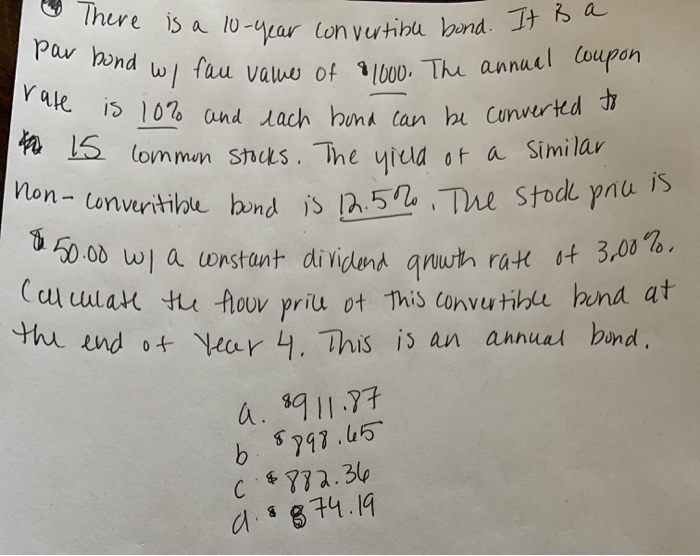 There is a 10-year convertible bond. It is a
par bond w/ face value of $1000. The annual coupon
rate is 10% and each bond can be converted to
15 common stocks. The yield of a similar
non-converitible bond is 12.5%. The stock price is
$50.00 w/ a constant dividend growth rate of 3.00%.
Calculate the floor price of this convertible bond at
the end of Year 4. This is an annual bond.
a. $911.87
b $898.65
c $882.36
d. $874.19